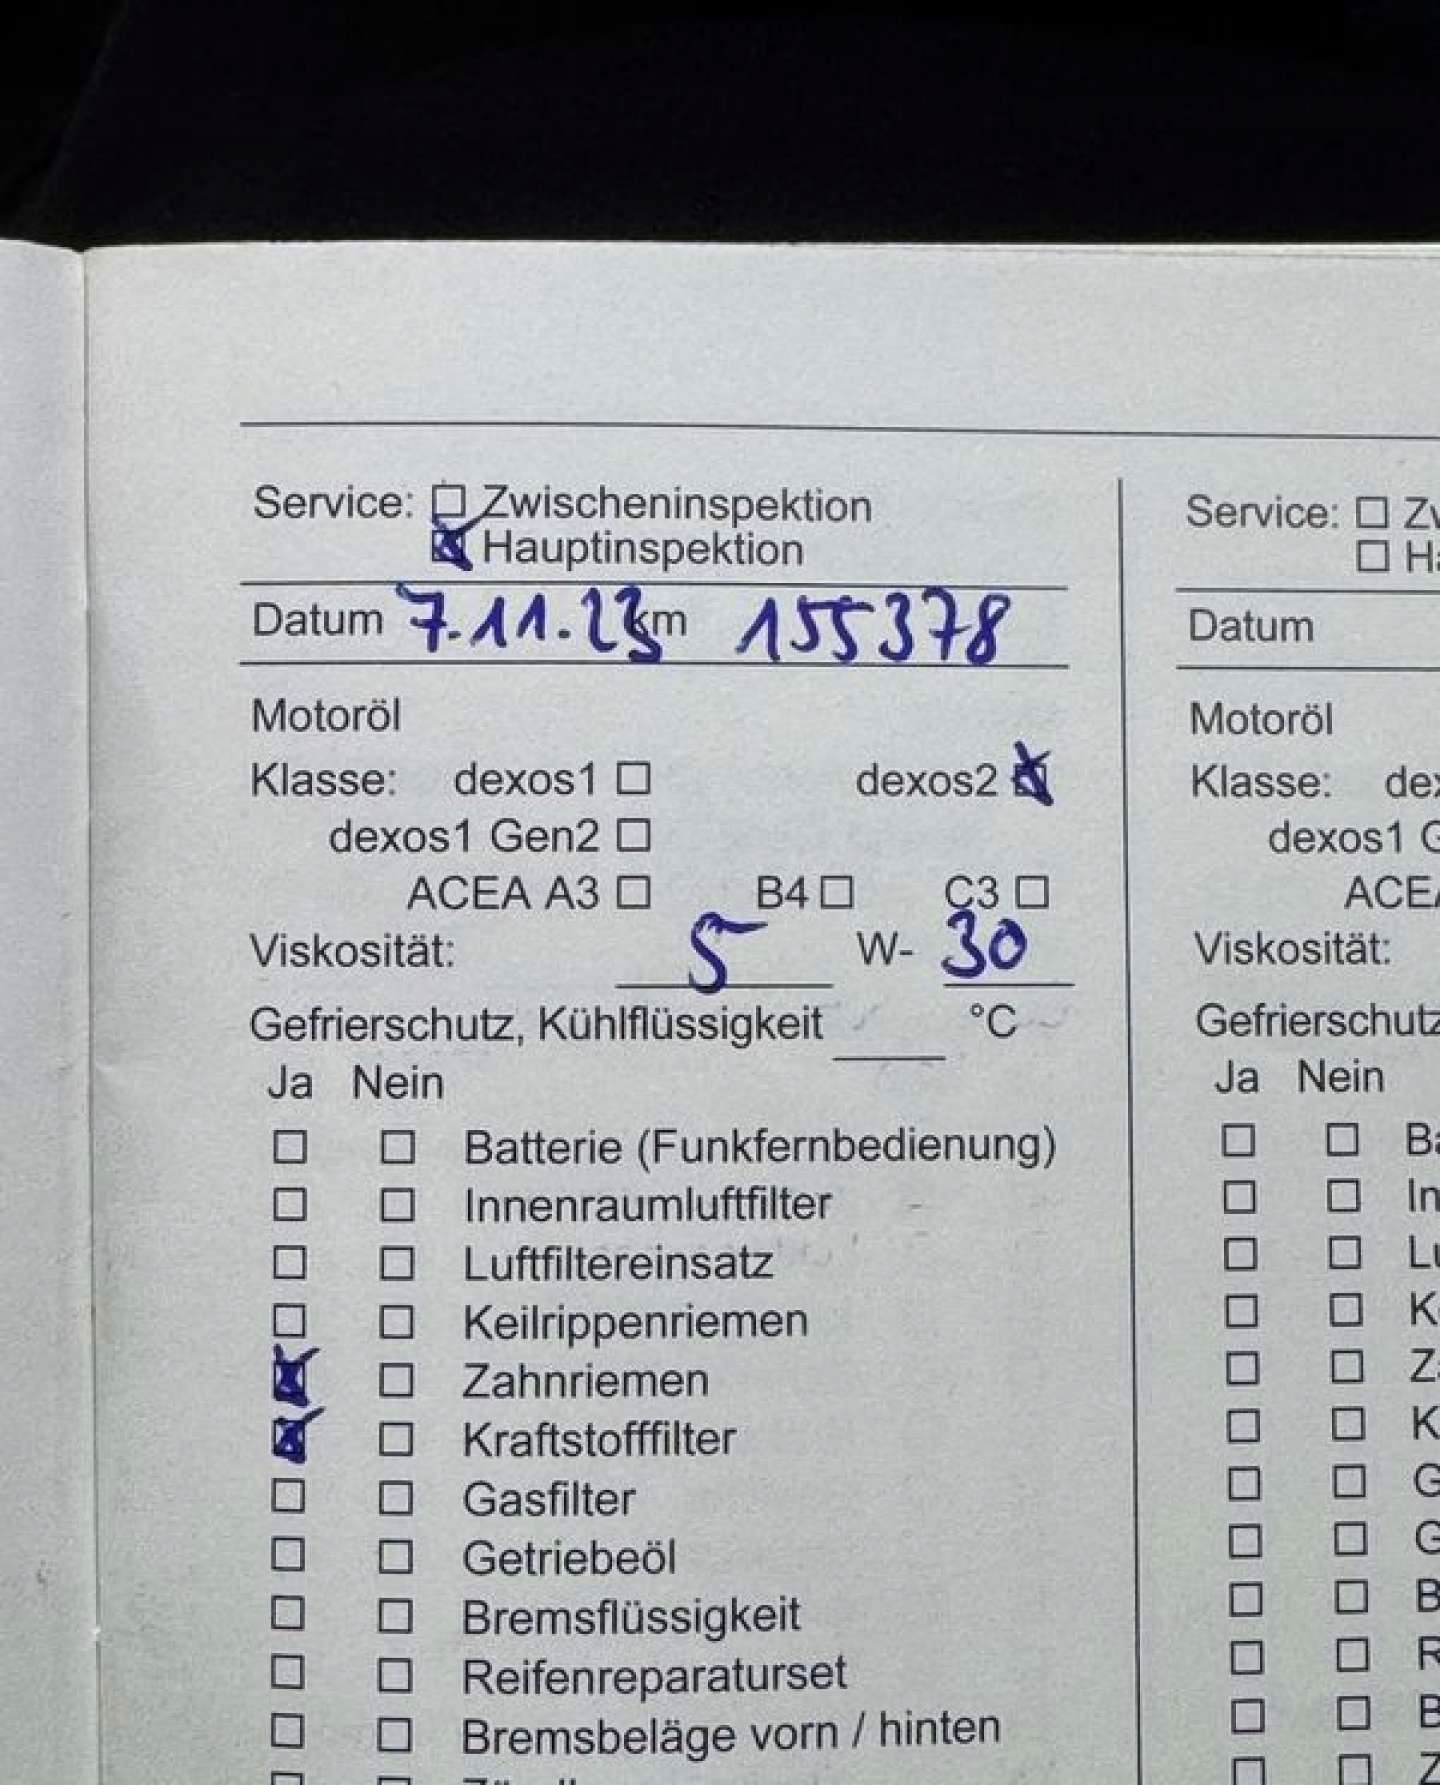 Service: ☐ Zwischeninspektion
☒ Hauptinspektion
Datum 7.11.23 km 155378
Motoröl
Klasse: dexos1 ☐ dexos2 ☒
dexos1 Gen2 ☐
ACEA A3 ☐ B4 ☐ C3 ☐
Viskosität: 5 W- 30
Gefrierschutz, Kühlflüssigkeit ____ °C
Ja Nein
☐ ☐ Batterie (Funkfernbedienung)
☐ ☐ Innenraumluftfilter
☐ ☐ Luftfiltereinsatz
☐ ☐ Keilrippenriemen
☒ ☐ Zahnriemen
☒ ☐ Kraftstofffilter
☐ ☐ Gasfilter
☐ ☐ Getriebeöl
☐ ☐ Bremsflüssigkeit
☐ ☐ Reifenreparaturset
☐ ☐ Bremsbeläge vorn / hinten
Service: ☐ Zw
☐ Ha
Datum
Motoröl
Klasse: dex
dexos1 G
ACEA
Viskosität:
Gefrierschutz
Ja Nein
☐ ☐ Ba
☐ ☐ In
☐ ☐ Lu
☐ ☐ Ke
☐ ☐ Za
☐ ☐ K
☐ ☐ G
☐ ☐ G
☐ ☐ B
☐ ☐ R
☐ ☐ B
☐ ☐ Z